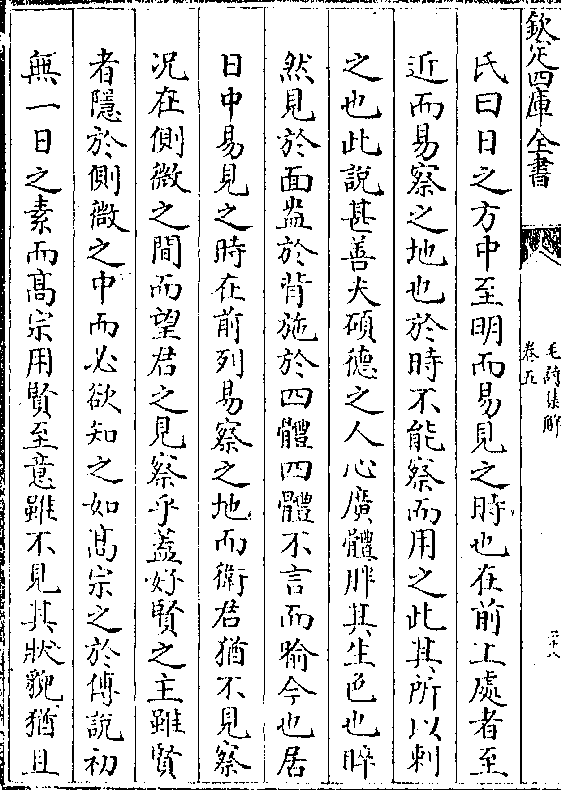 欽定四庫全書
毛詩集解
卷五
二十八
氏曰日之方中至明而易見之時也在前上處者至
近而易察之地也於時不能察而用之此其所以刺
之也此說甚善夫碩德之人心廣體胖其生色也睟
然見於面盎於背施於四體四體不言而喻今也居
日中易見之時在前列易察之地而衛君猶不見察
况在側微之間而望君之見察乎蓋好賢之主雖賢
者隱於側微之中而必欲知之如髙宗之於傅說初
無一日之素而髙宗用賢至意雖不見其狀貌猶且